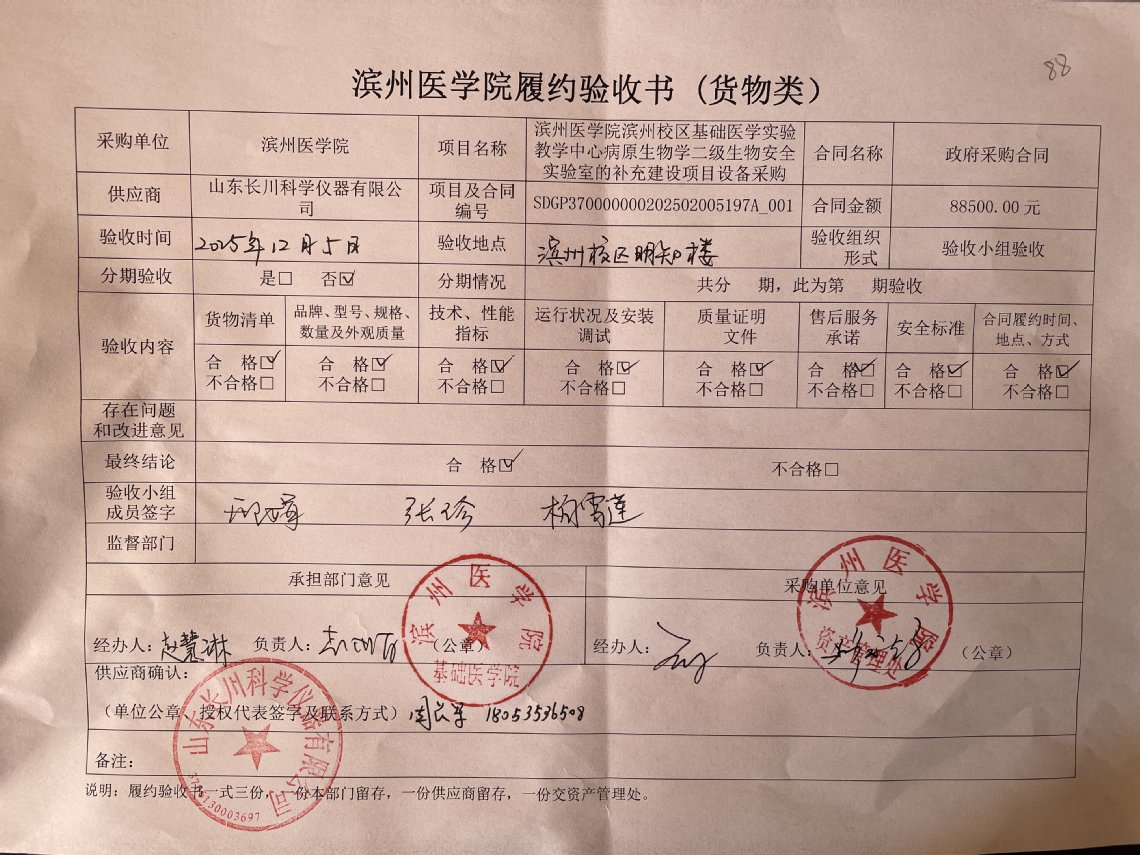 88
滨州医学院履约验收书（货物类）
采购单位 滨州医学院 项目名称 滨州医学院滨州校区基础医学实验
教学中心病原生物学二级生物安全
实验室的补充建设项目设备采购 合同名称 政府采购合同
供应商 山东长川科学仪器有限公
司 项目及合同
编号 SDGP370000000202502005197A_001 合同金额 88500.00 元
验收时间 2025年12月5日 验收地点 滨州校区明知楼 验收组织
形式 验收小组验收
分期验收 是□ 否☑ 分期情况 共分 期，此为第 期验收
验收内容
货物清单 品牌、型号、规格、
数量及外观质量 技术、性能
指标 运行状况及安装
调试 质量证明
文件 售后服务
承诺 安全标准 合同履约时间、
地点、方式
合 格☑ 合 格☑ 合 格☑ 合 格☑ 合 格☑ 合 格☑ 合 格☑ 合 格☑
不合格□ 不合格□ 不合格□ 不合格□ 不合格□ 不合格□ 不合格□ 不合格□
存在问题
和改进意见
最终结论 合 格☑ 不合格□
验收小组
成员签字 张珍
监督部门
承担部门意见 采购单位意见
经办人：赵慧琳 负责人： （公章） 经办人： 负责人： （公章）
滨州医学院
基础医学院
滨州医学院
资产管理处
供应商确认：
（单位公章，授权代表签字及联系方式） 18053536508
山东长川科学仪器有限公司
备注：
说明：履约验收书一式三份，一份本部门留存，一份供应商留存，一份交资产管理处。